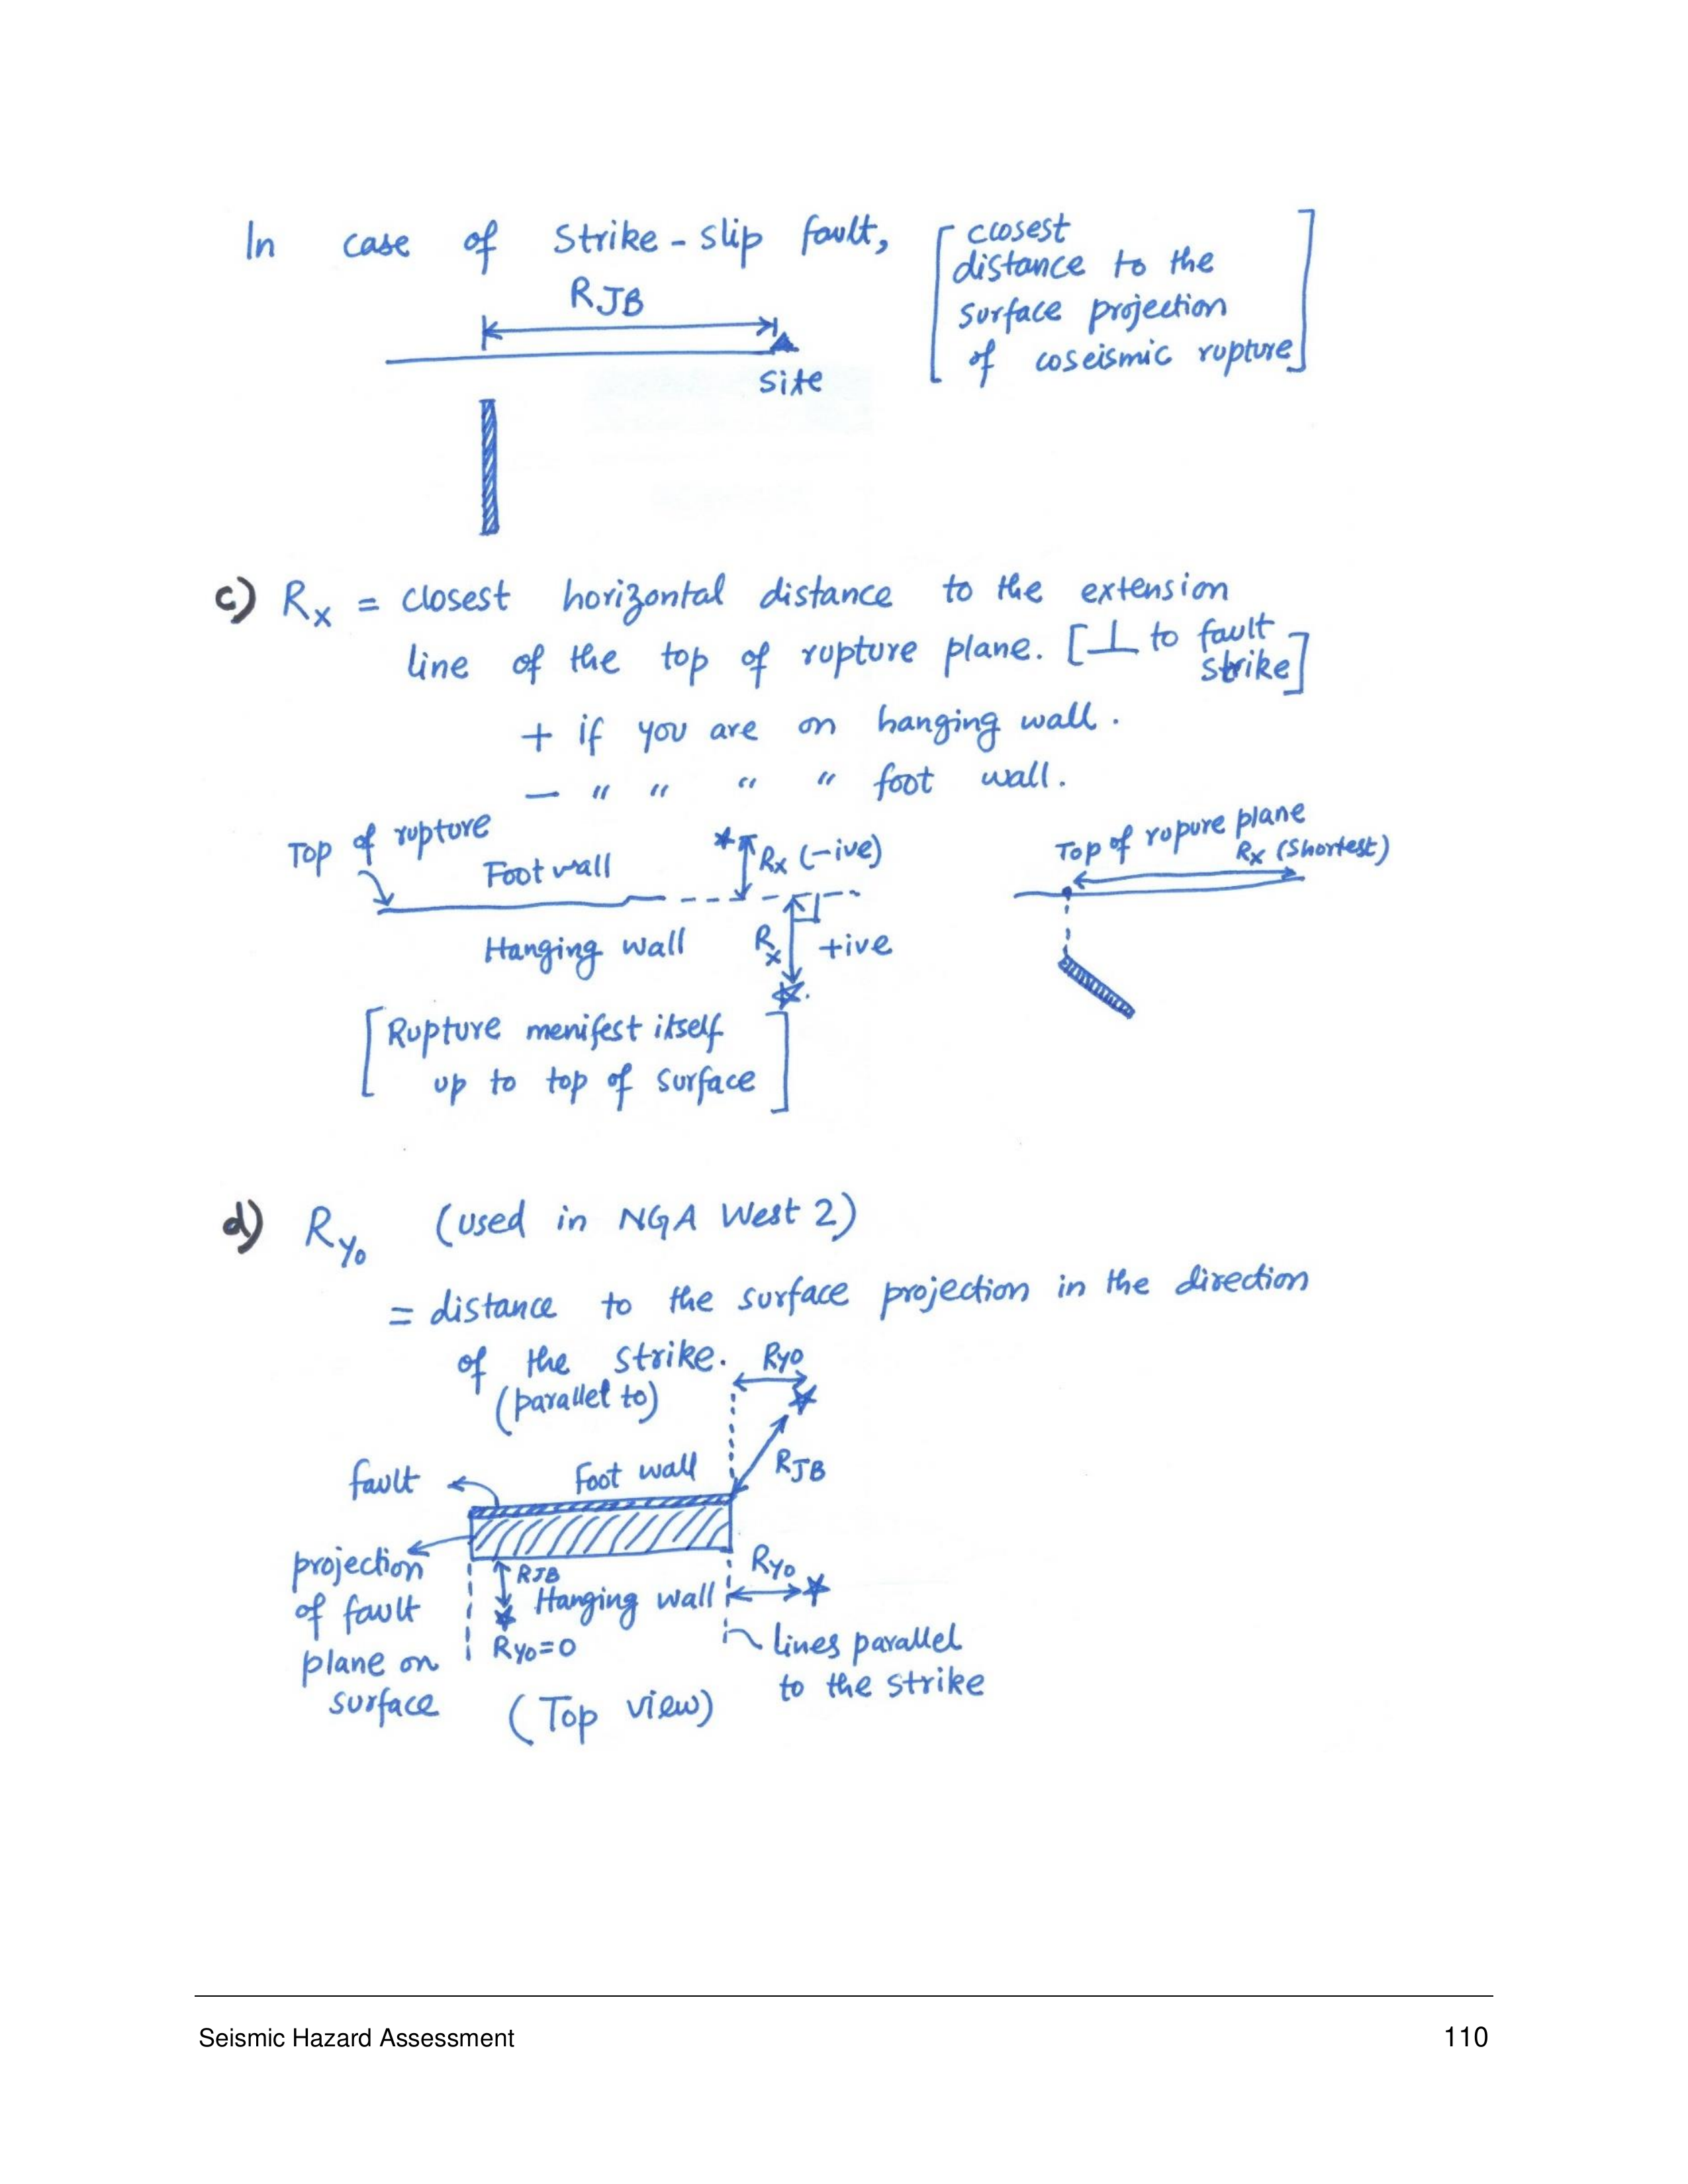 In case of Strike-slip fault,
[closest
distance to the
surface projection
of coseismic rupture]
RJB
Site
c) Rx = closest horizontal distance to the extension
line of the top of rupture plane. [⊥ to fault
strike]
+ if you are on hanging wall.
— " " " " foot wall.
Top of rupture
Foot wall
Rx (-ive)
Hanging wall
Rx
+ive
Top of ropure plane
Rx (Shortest)
[Rupture menifest itself
up to top of surface]
d) Ryo (used in NGA West 2)
= distance to the surface projection in the direction
of the strike.
(parallel to)
Ryo
RJB
fault
Foot wall
projection
of fault
plane on
surface
RJB
Hanging wall
Ryo
Ryo=0
lines parallel
to the strike
(Top view)
Seismic Hazard Assessment
110